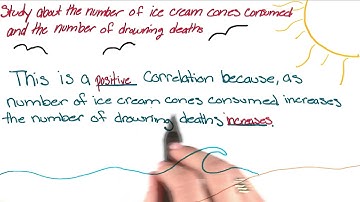 Study about the number of ice cream cones consumed
and the number of drowning deaths
This is a positive correlation because, as
number of ice cream cones consumed increases
the number of drowning deaths increases.